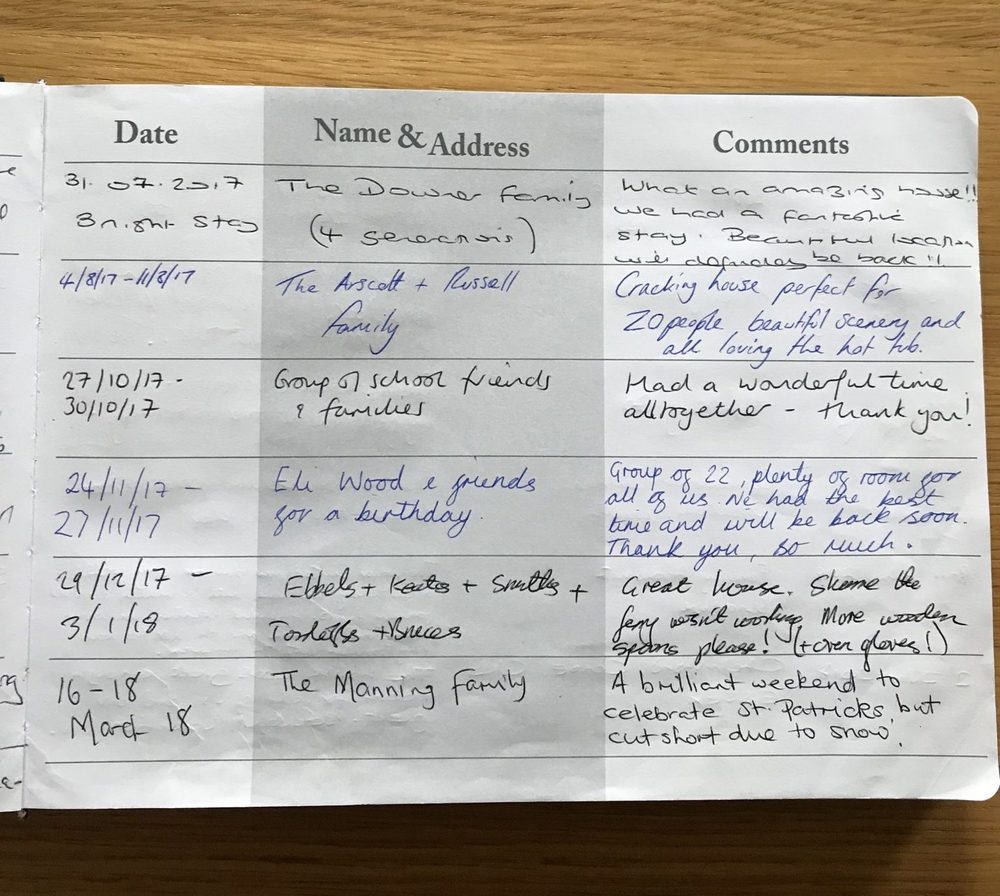 Date
Name & Address
Comments
31.07.2017
3 night stay
The Downer family
(4 generations)
What an amazing house!!
we had a fantastic
stay. Beautiful location
will definitely be back!!
4/8/17-11/8/17
The Arscott + Russell
family
Cracking house perfect for
20 people, beautiful scenery and
all loving the hot tub.
27/10/17 -
30/10/17
Group of school friends
& families
Had a wonderful time
alltogether - thank you!
24/11/17 -
27/11/17
Eli Wood & friends
for a birthday.
Group of 22, plenty of room for
all of us. We had the best
time and will be back soon.
Thank you, so much.
29/12/17 -
3/1/18
+ + Smiths +
Great house. Shame the
ferry wasn't working. More wooden
spoons please! (+ oven gloves!)
16-18
March 18
The Manning Family
A brilliant weekend to
celebrate St. Patricks, but
cut short due to snow.